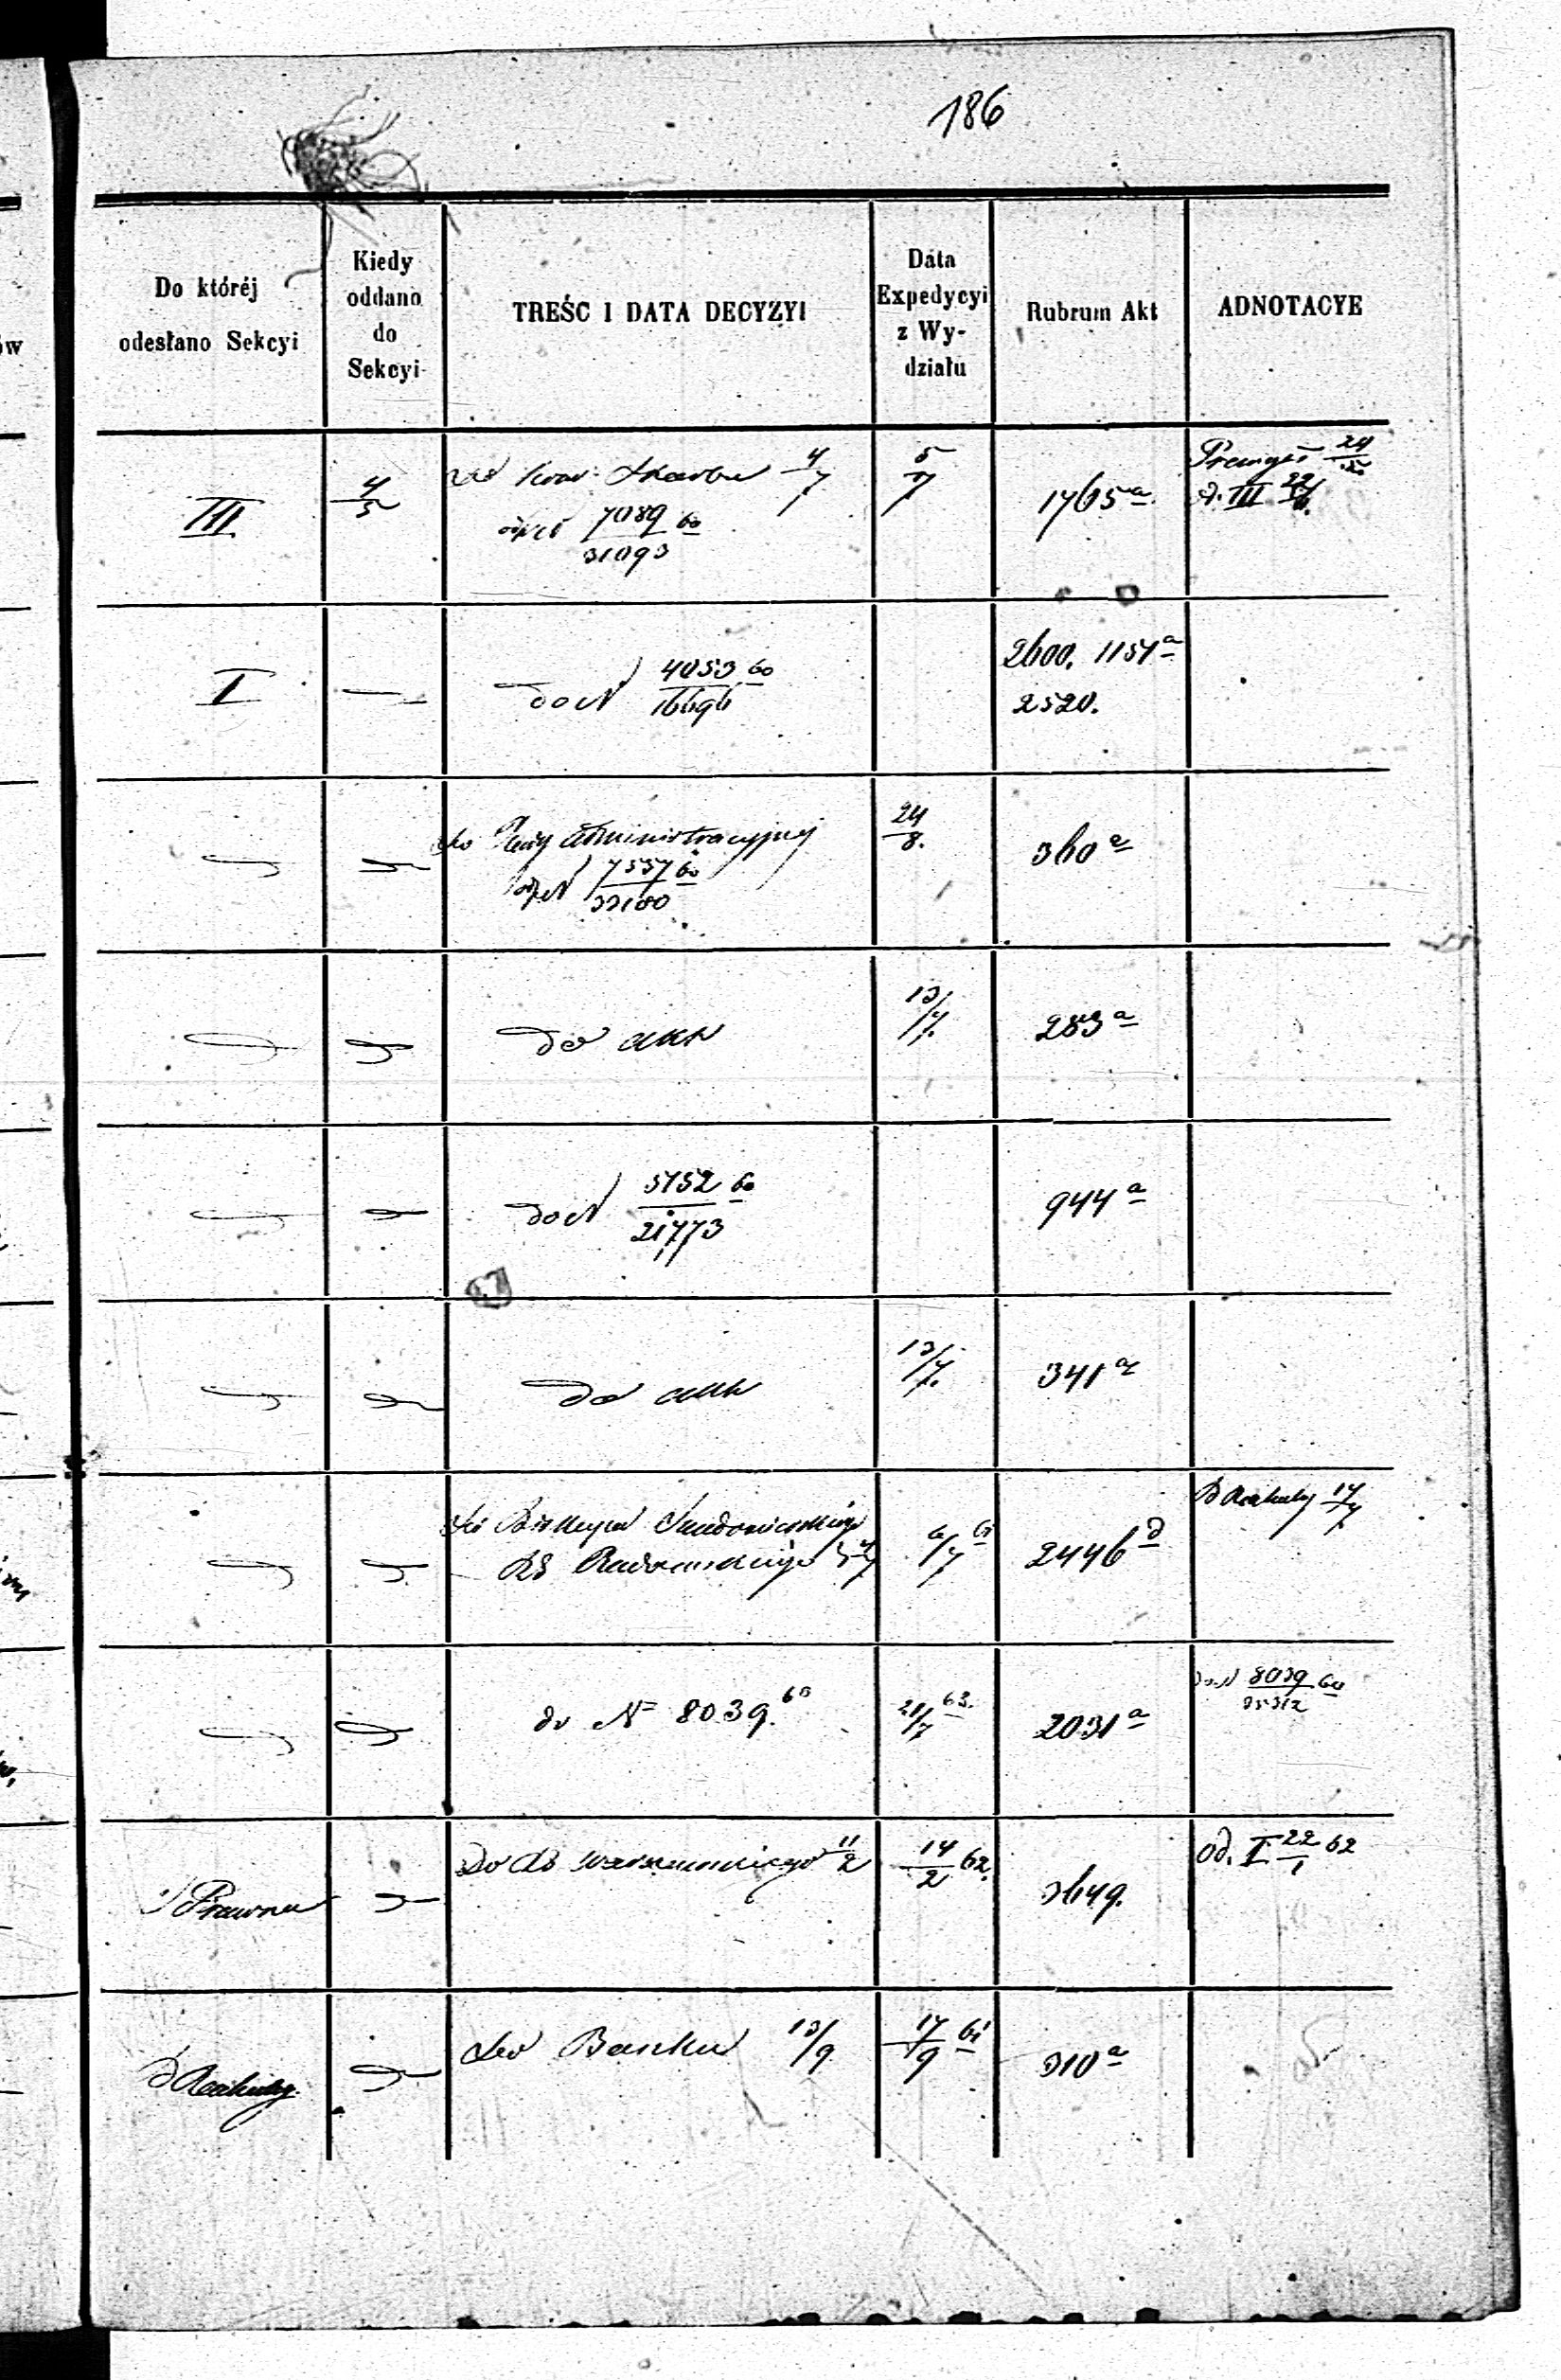 186
Do któréj
odesłano Sekcyi
Kiedy
oddano
do
Sekcyi
TREŚC I DATA DECYZYI
Data
Expedycyi
z Wy-
działu
Rubrum Akt
ADNOTACYE
III
4/5
Skarbu 4/7
7089/31093 60
5/7
1765a
III
I
do N 4053/16696 60
2600. 1157a
2520.
do Rady Administracyjnej
7537/33180 60
24/8.
360a
do akt
13/7.
283a
do N 5752/21773 60
944a
do akt
13/7.
341a
do Biskupa Sandomierskiego
RG Radomskiego
6/7 61
2446d
17/7
do N 8039. 60
21/7 63.
2031a
do N 8039/35312 60
Prawna
Do RG Warszawskiego 11/2
14/2 62.
3649.
od. I 22/1 62
do Banku 13/9
17/9 61
310a